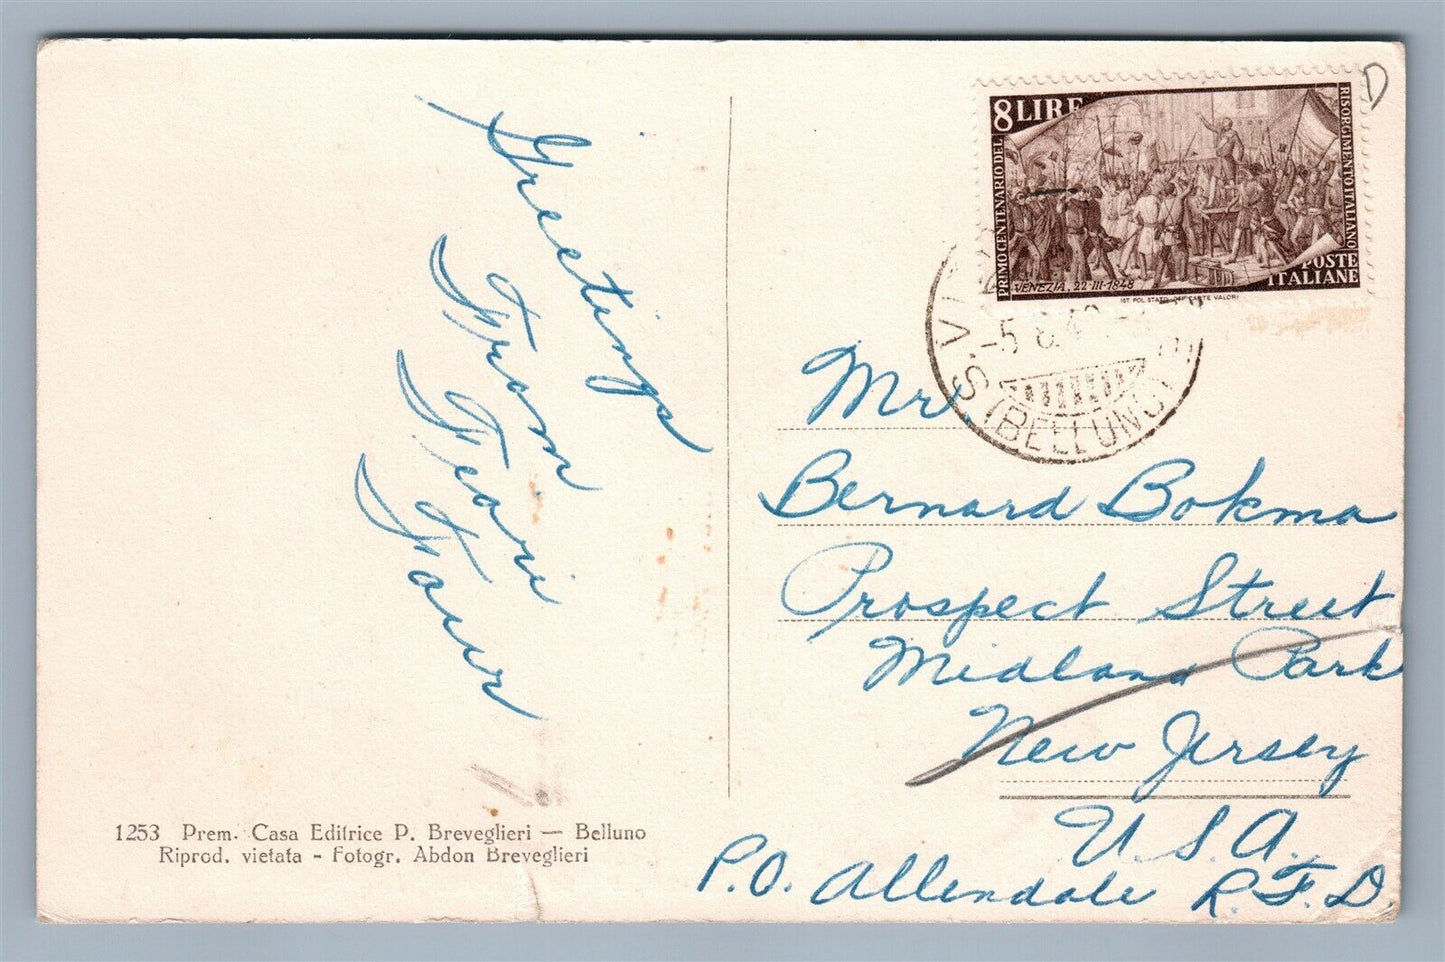 Greetings
From
Teari
Tour
1253 Prem. Casa Editrice P. Breveglieri — Belluno
Riprod. vietata - Fotogr. Abdon Breveglieri
D
8 LIRE
PRIMO CENTENARIO DEL
RISORGIMENTO ITALIANO
POSTE
ITALIANE
VENEZIA, 22-III-1848
IST. POL. STATO OFF. CARTE VALORI
-5 8.49
(BELLUNO)
Mr.
Bernard Bokma
Prospect Street
Midland Park
New Jersey
U.S.A.
P.O. Allendale R.F.D.